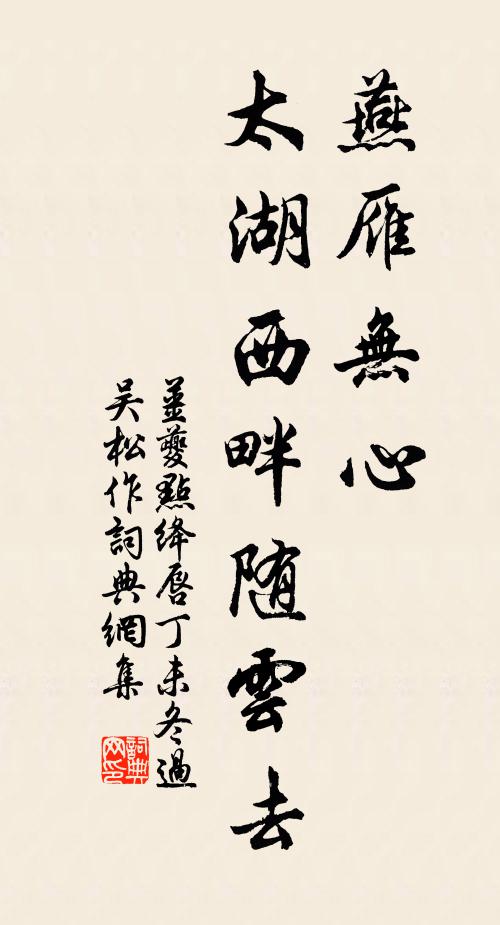 燕雁無心
太湖西畔随雲去
姜夔點絳唇丁未冬過
吳松作詞典網集
詞典
网印